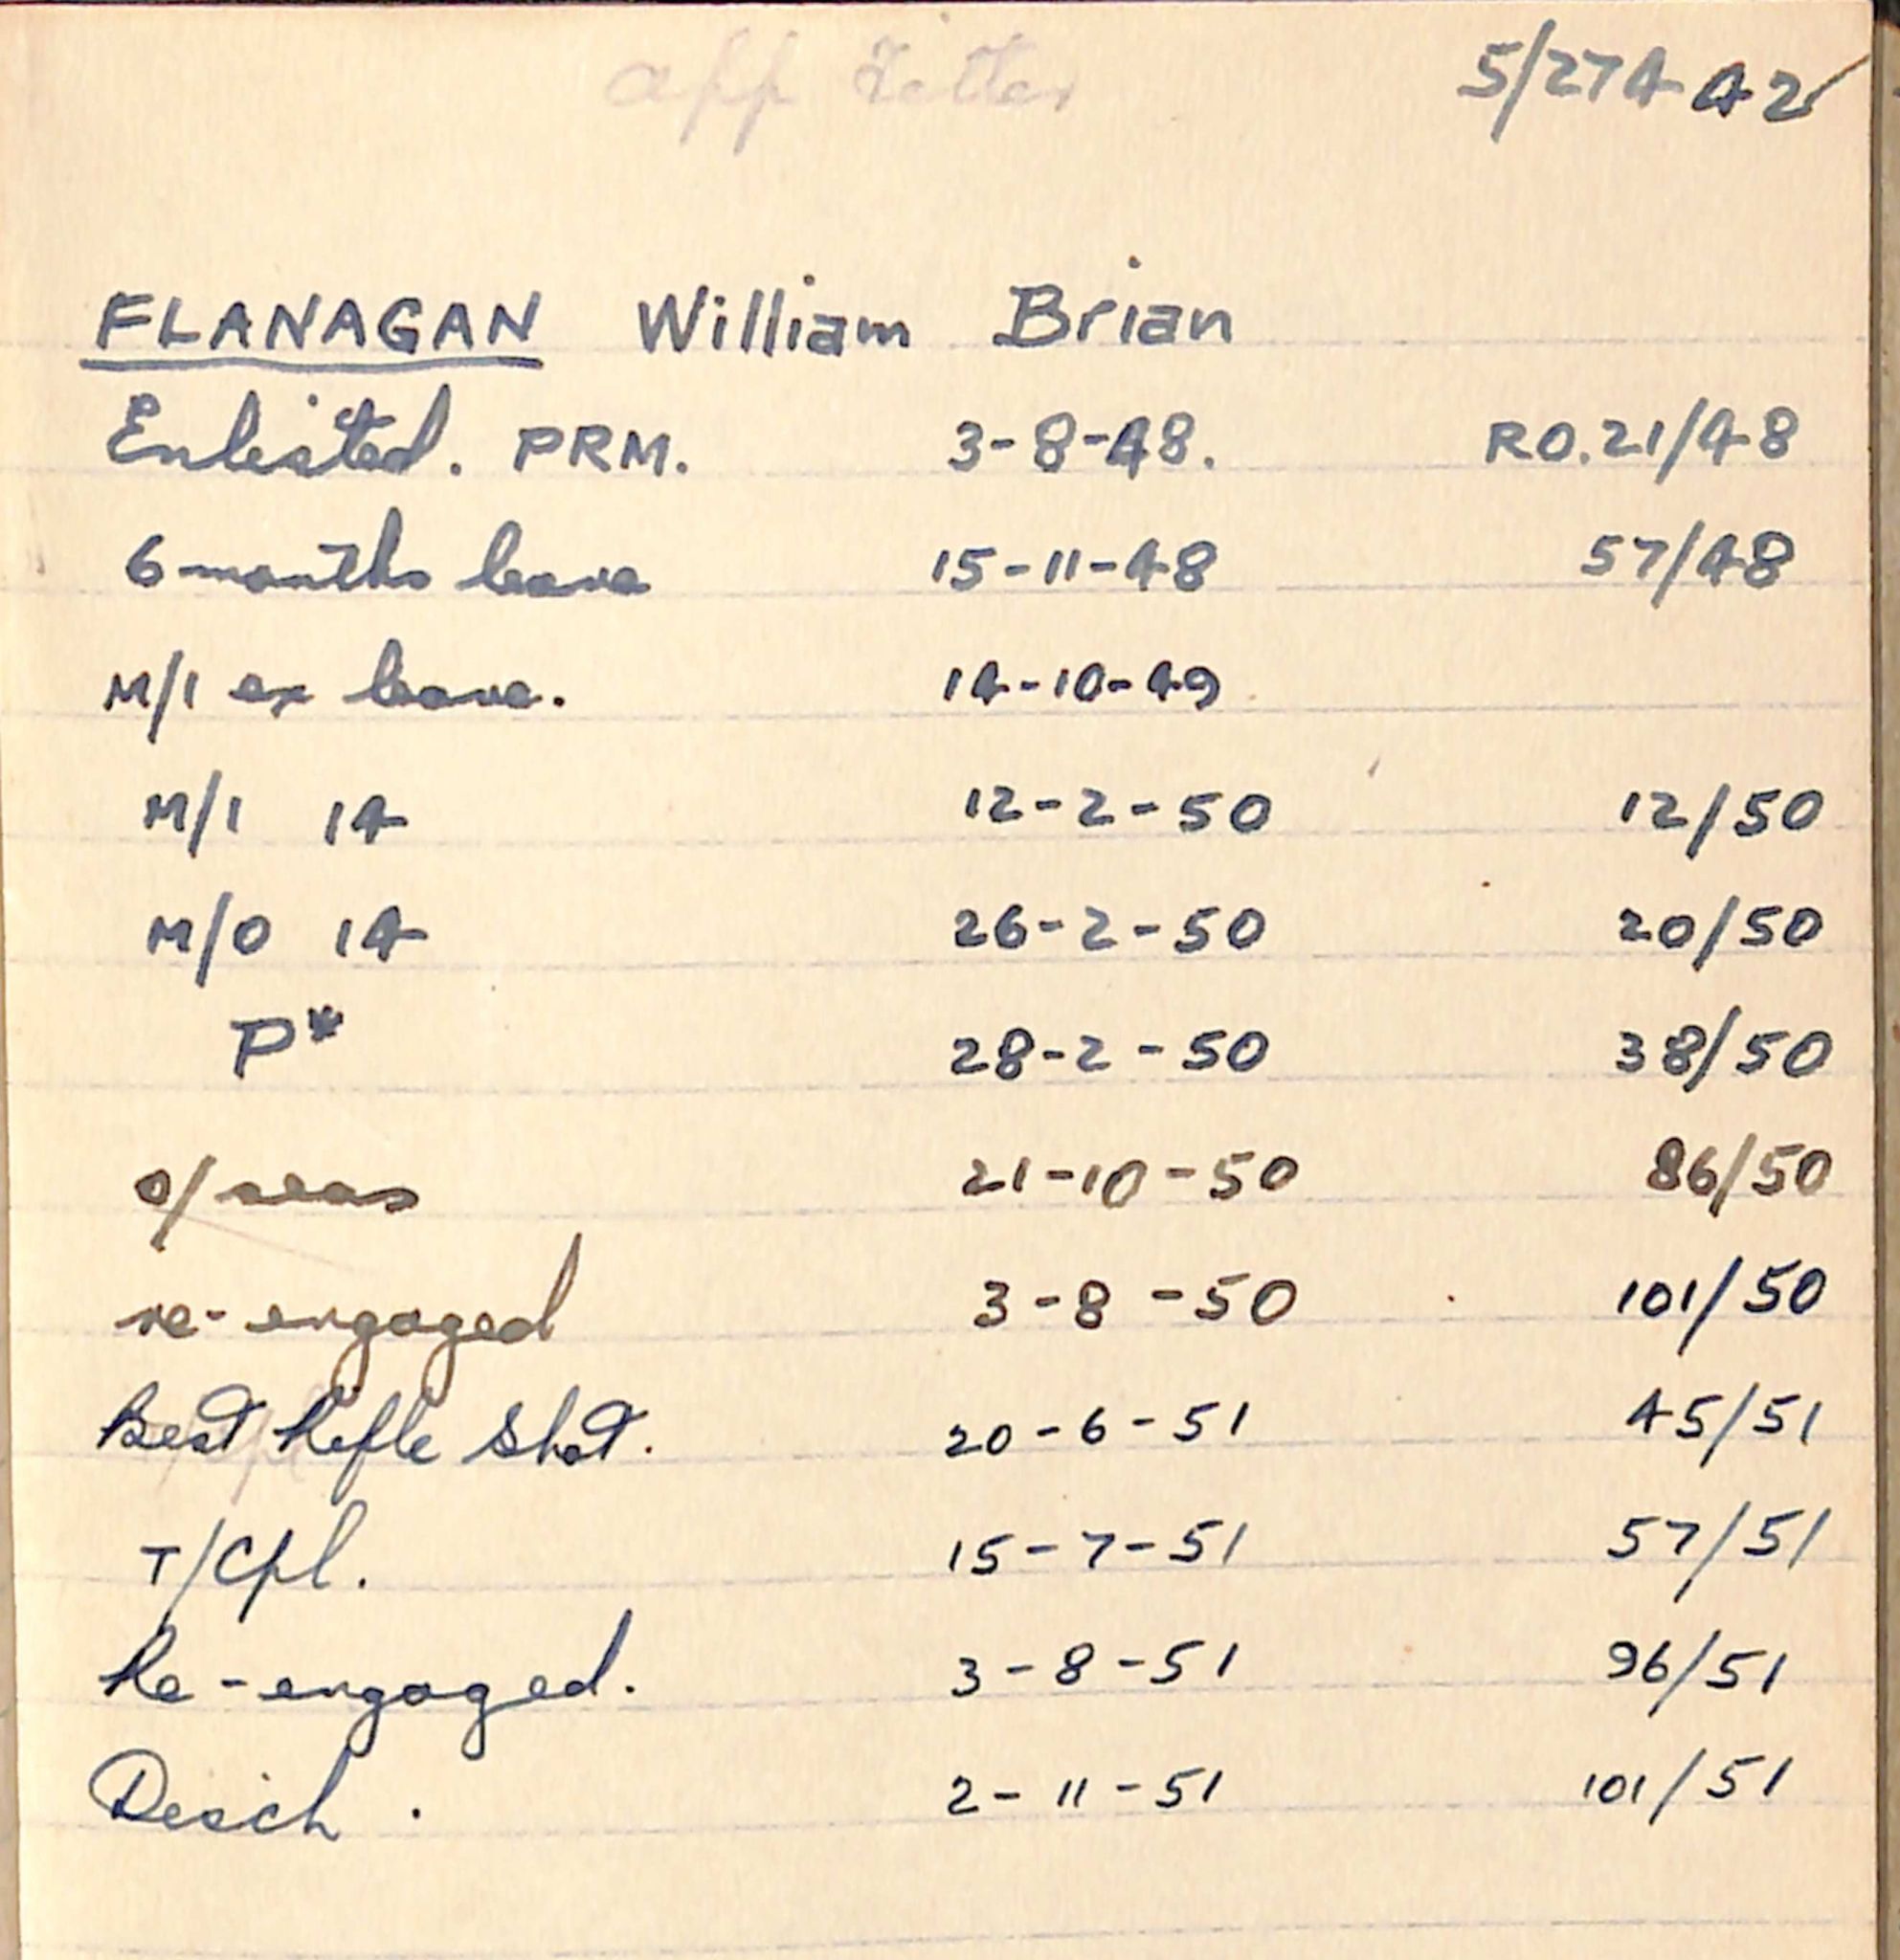 app letter 5/27442
FLANAGAN William Brian
Enlisted. PRM. 3-8-48. RO.21/48
6 months leave 15-11-48 57/48
M/1 ex leave. 14-10-49
M/1 14 12-2-50 12/50
M/O 14 26-2-50 20/50
P* 28-2-50 38/50
o/seas 21-10-50 86/50
re-engaged 3-8-50 101/50
Best Rifle Shot. 20-6-51 45/51
T/Cpl. 15-7-51 57/51
Re-engaged. 3-8-51 96/51
Disch. 2-11-51 101/51